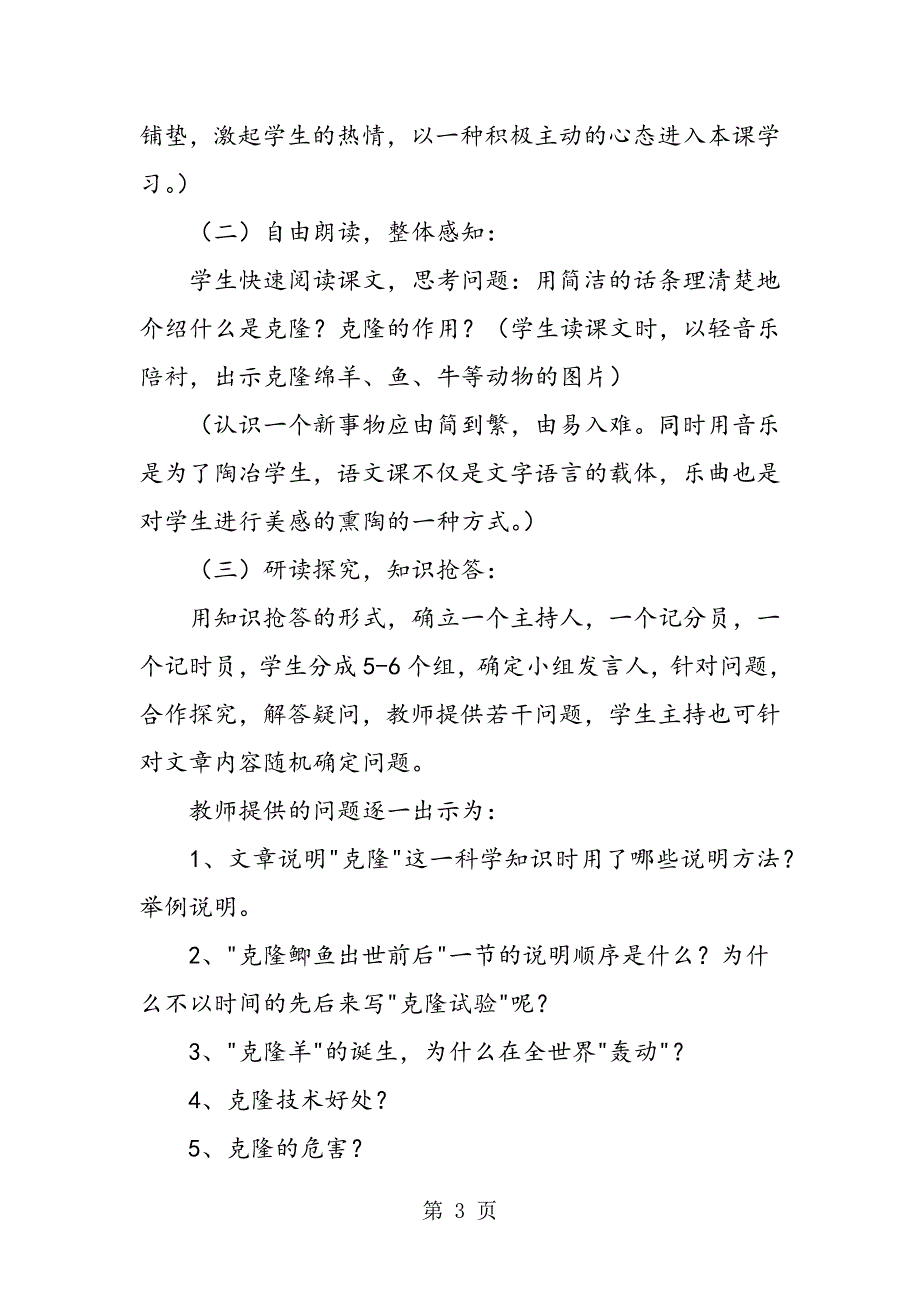 铺垫，激起学生的热情，以一种积极主动的心态进入本课学
习。）
（二）自由朗读，整体感知：
学生快速阅读课文，思考问题：用简洁的话条理清楚地
介绍什么是克隆？克隆的作用？（学生读课文时，以轻音乐
陪衬，出示克隆绵羊、鱼、牛等动物的图片）
（认识一个新事物应由简到繁，由易入难。同时用音乐
是为了陶冶学生，语文课不仅是文字语言的载体，乐曲也是
对学生进行美感的熏陶的一种方式。）
（三）研读探究，知识抢答：
用知识抢答的形式，确立一个主持人，一个记分员，一
个记时员，学生分成 5-6 个组，确定小组发言人，针对问题，
合作探究，解答疑问，教师提供若干问题，学生主持也可针
对文章内容随机确定问题。
教师提供的问题逐一出示为：
1、文章说明"克隆"这一科学知识时用了哪些说明方法？
举例说明。
2、"克隆鲫鱼出世前后"一节的说明顺序是什么？为什
么不以时间的先后来写"克隆试验"呢？
3、"克隆羊"的诞生，为什么在全世界"轰动"？
4、克隆技术好处？
5、克隆的危害？
第 3 页